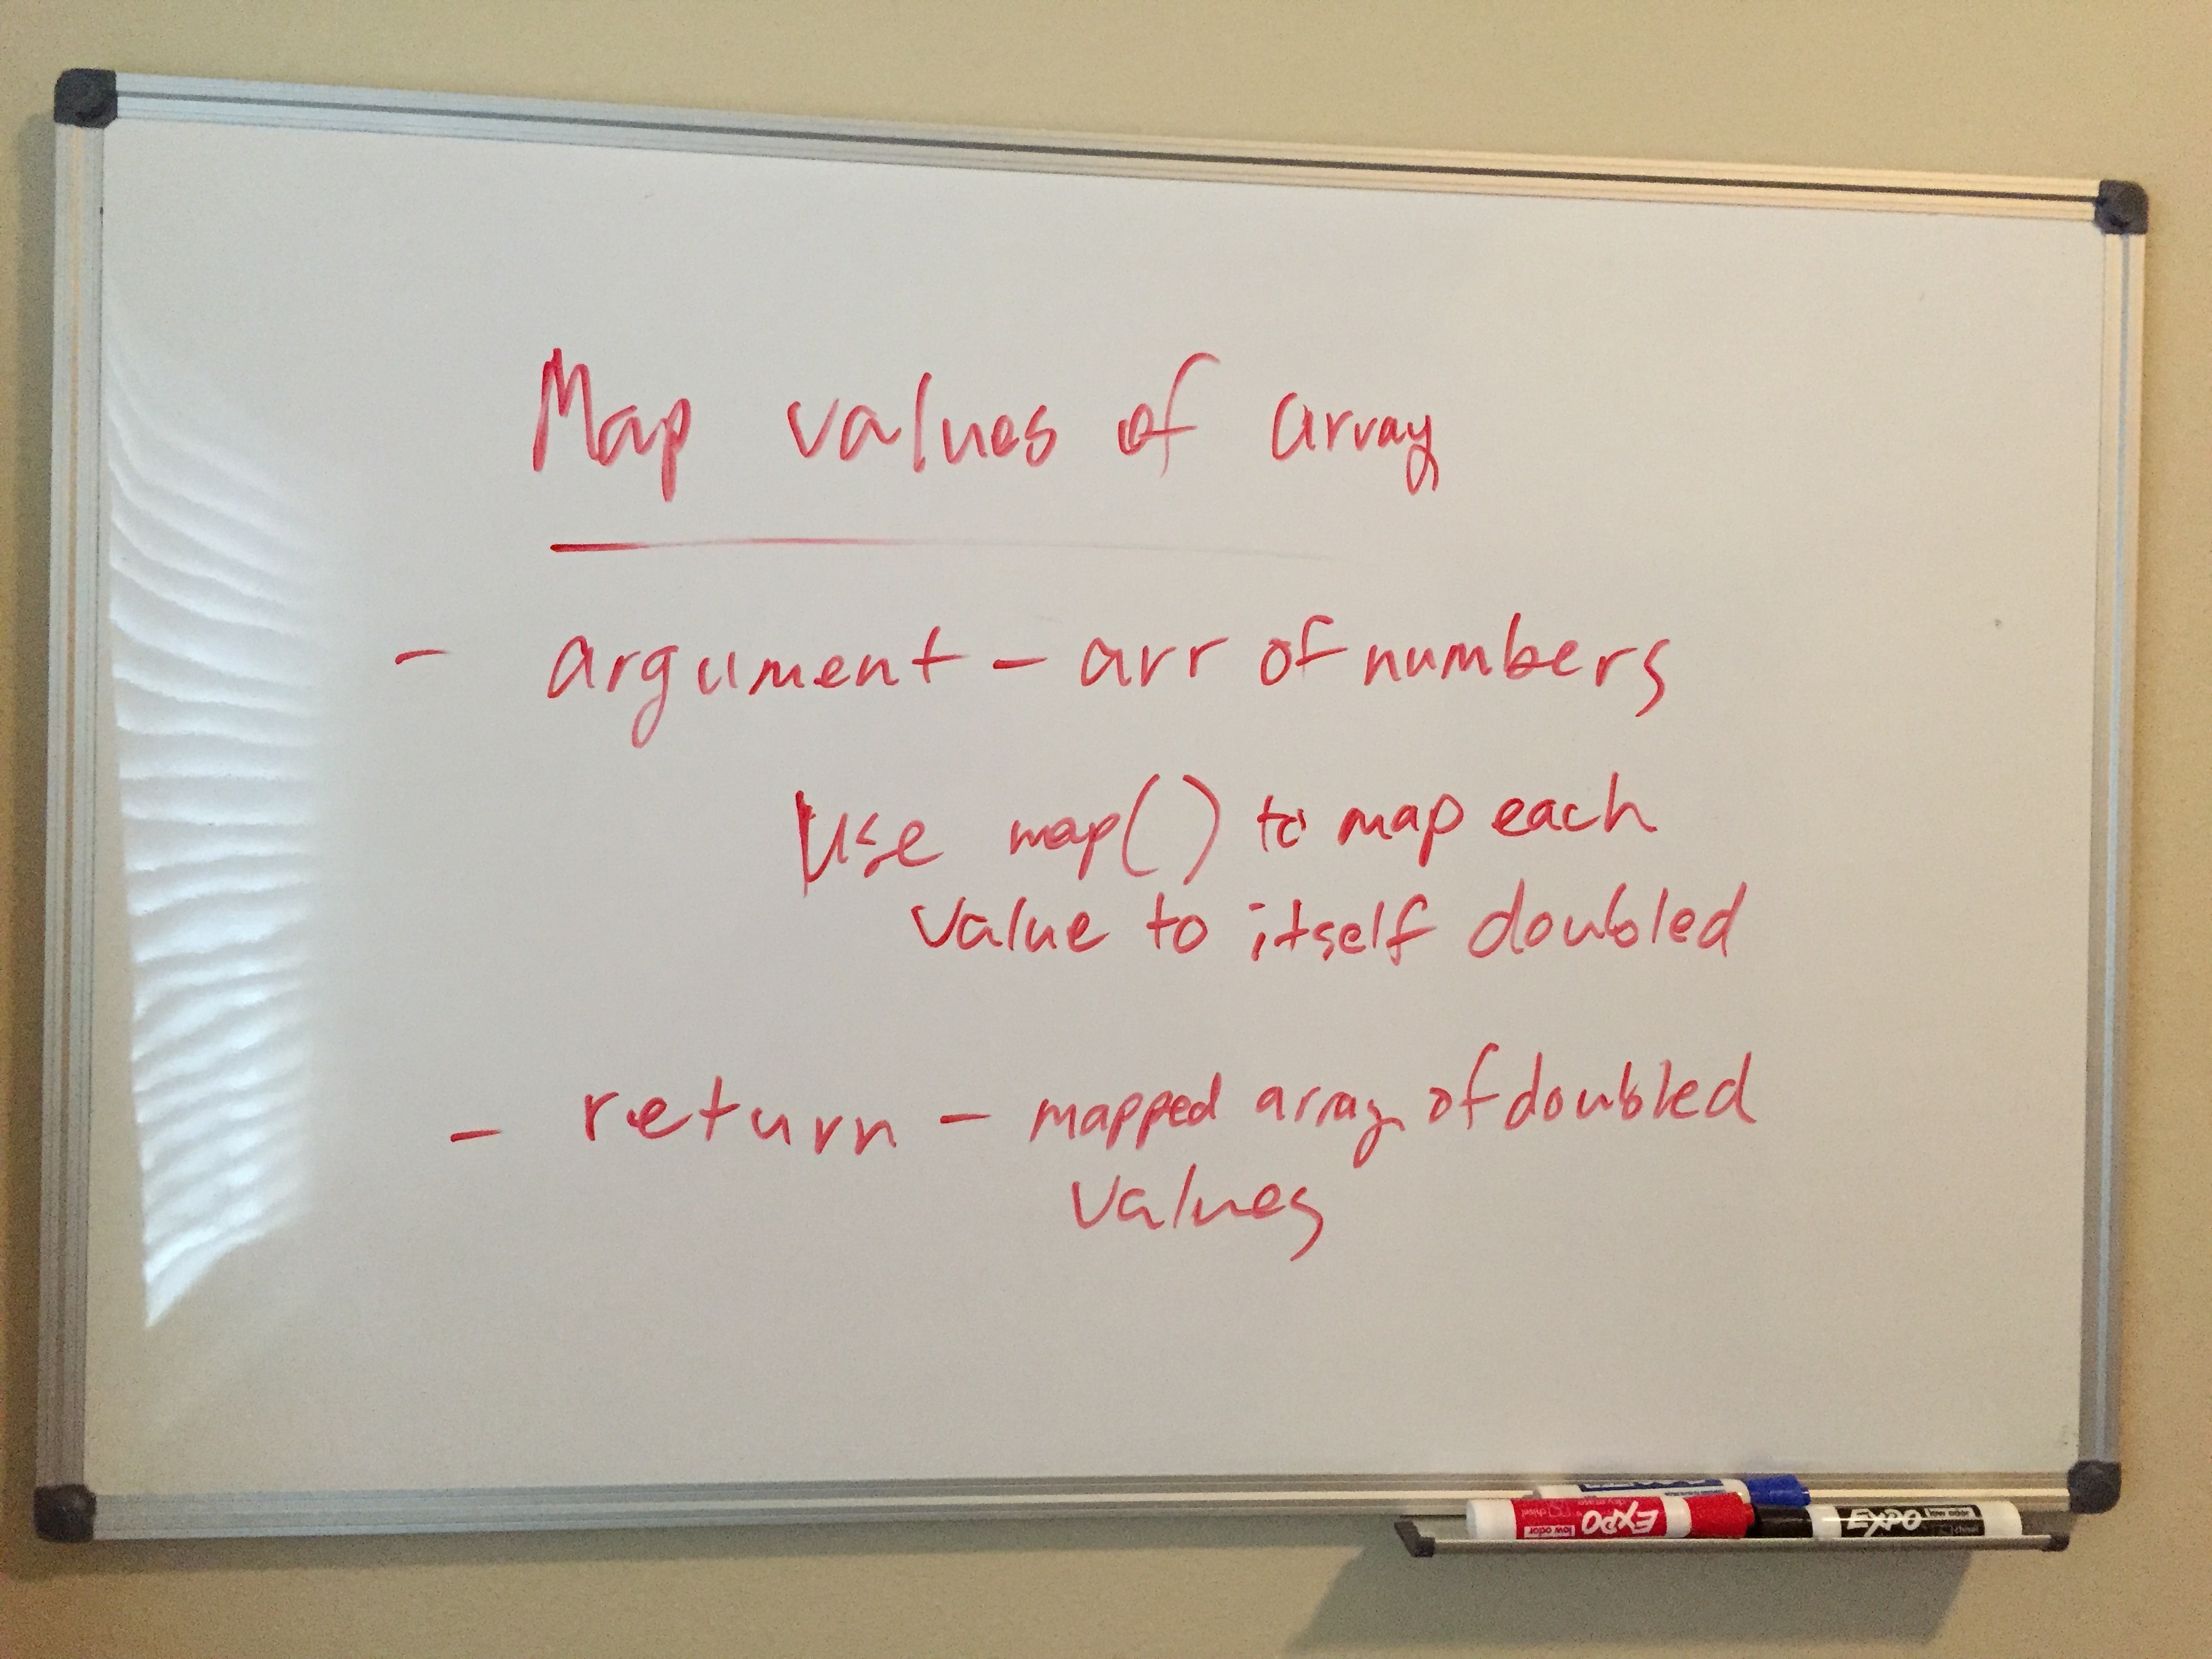 Map values of array
- argument - arr of numbers
Use map() to map each
value to itself doubled
- return - mapped array of doubled
values
EXPO
low odor
chisel
EXPO
low odor
chisel